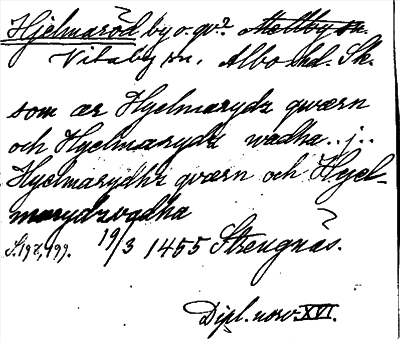 Hjelmaröd by o. gd? Mellby sn.
Vitaby sn, Albo hd. Sk.
som ær Hyelmarydz qwærn
och Hyelmarydz wadha..j..
Hyelmarydhz qværn och Hyel-
marydzvadha
S.198,199. 19/3 1455 Strengnäs.
Dipl. norv. XVI.